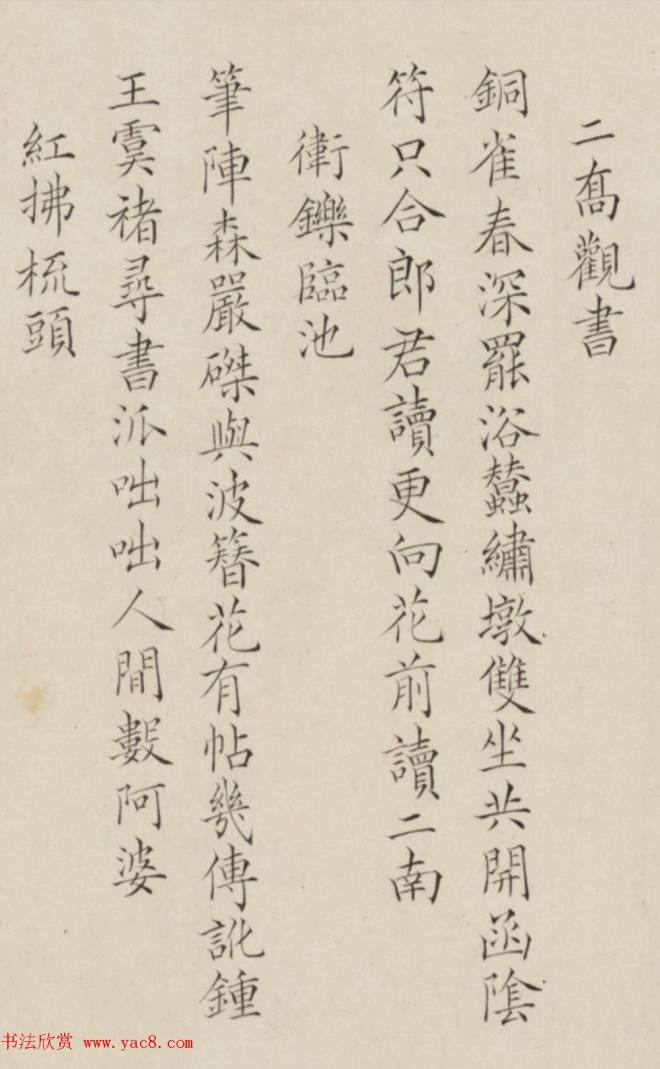 二喬觀書
銅雀春深罷浴蠶繡墩雙坐共開函陰
符只合郎君讀更向花前讀二南
衛鑠臨池
筆陣森嚴磔與波簪花有帖幾傳訛鍾
王虞褚尋書派咄咄人間數阿婆
紅拂梳頭
书法欣赏 www.yac8.com